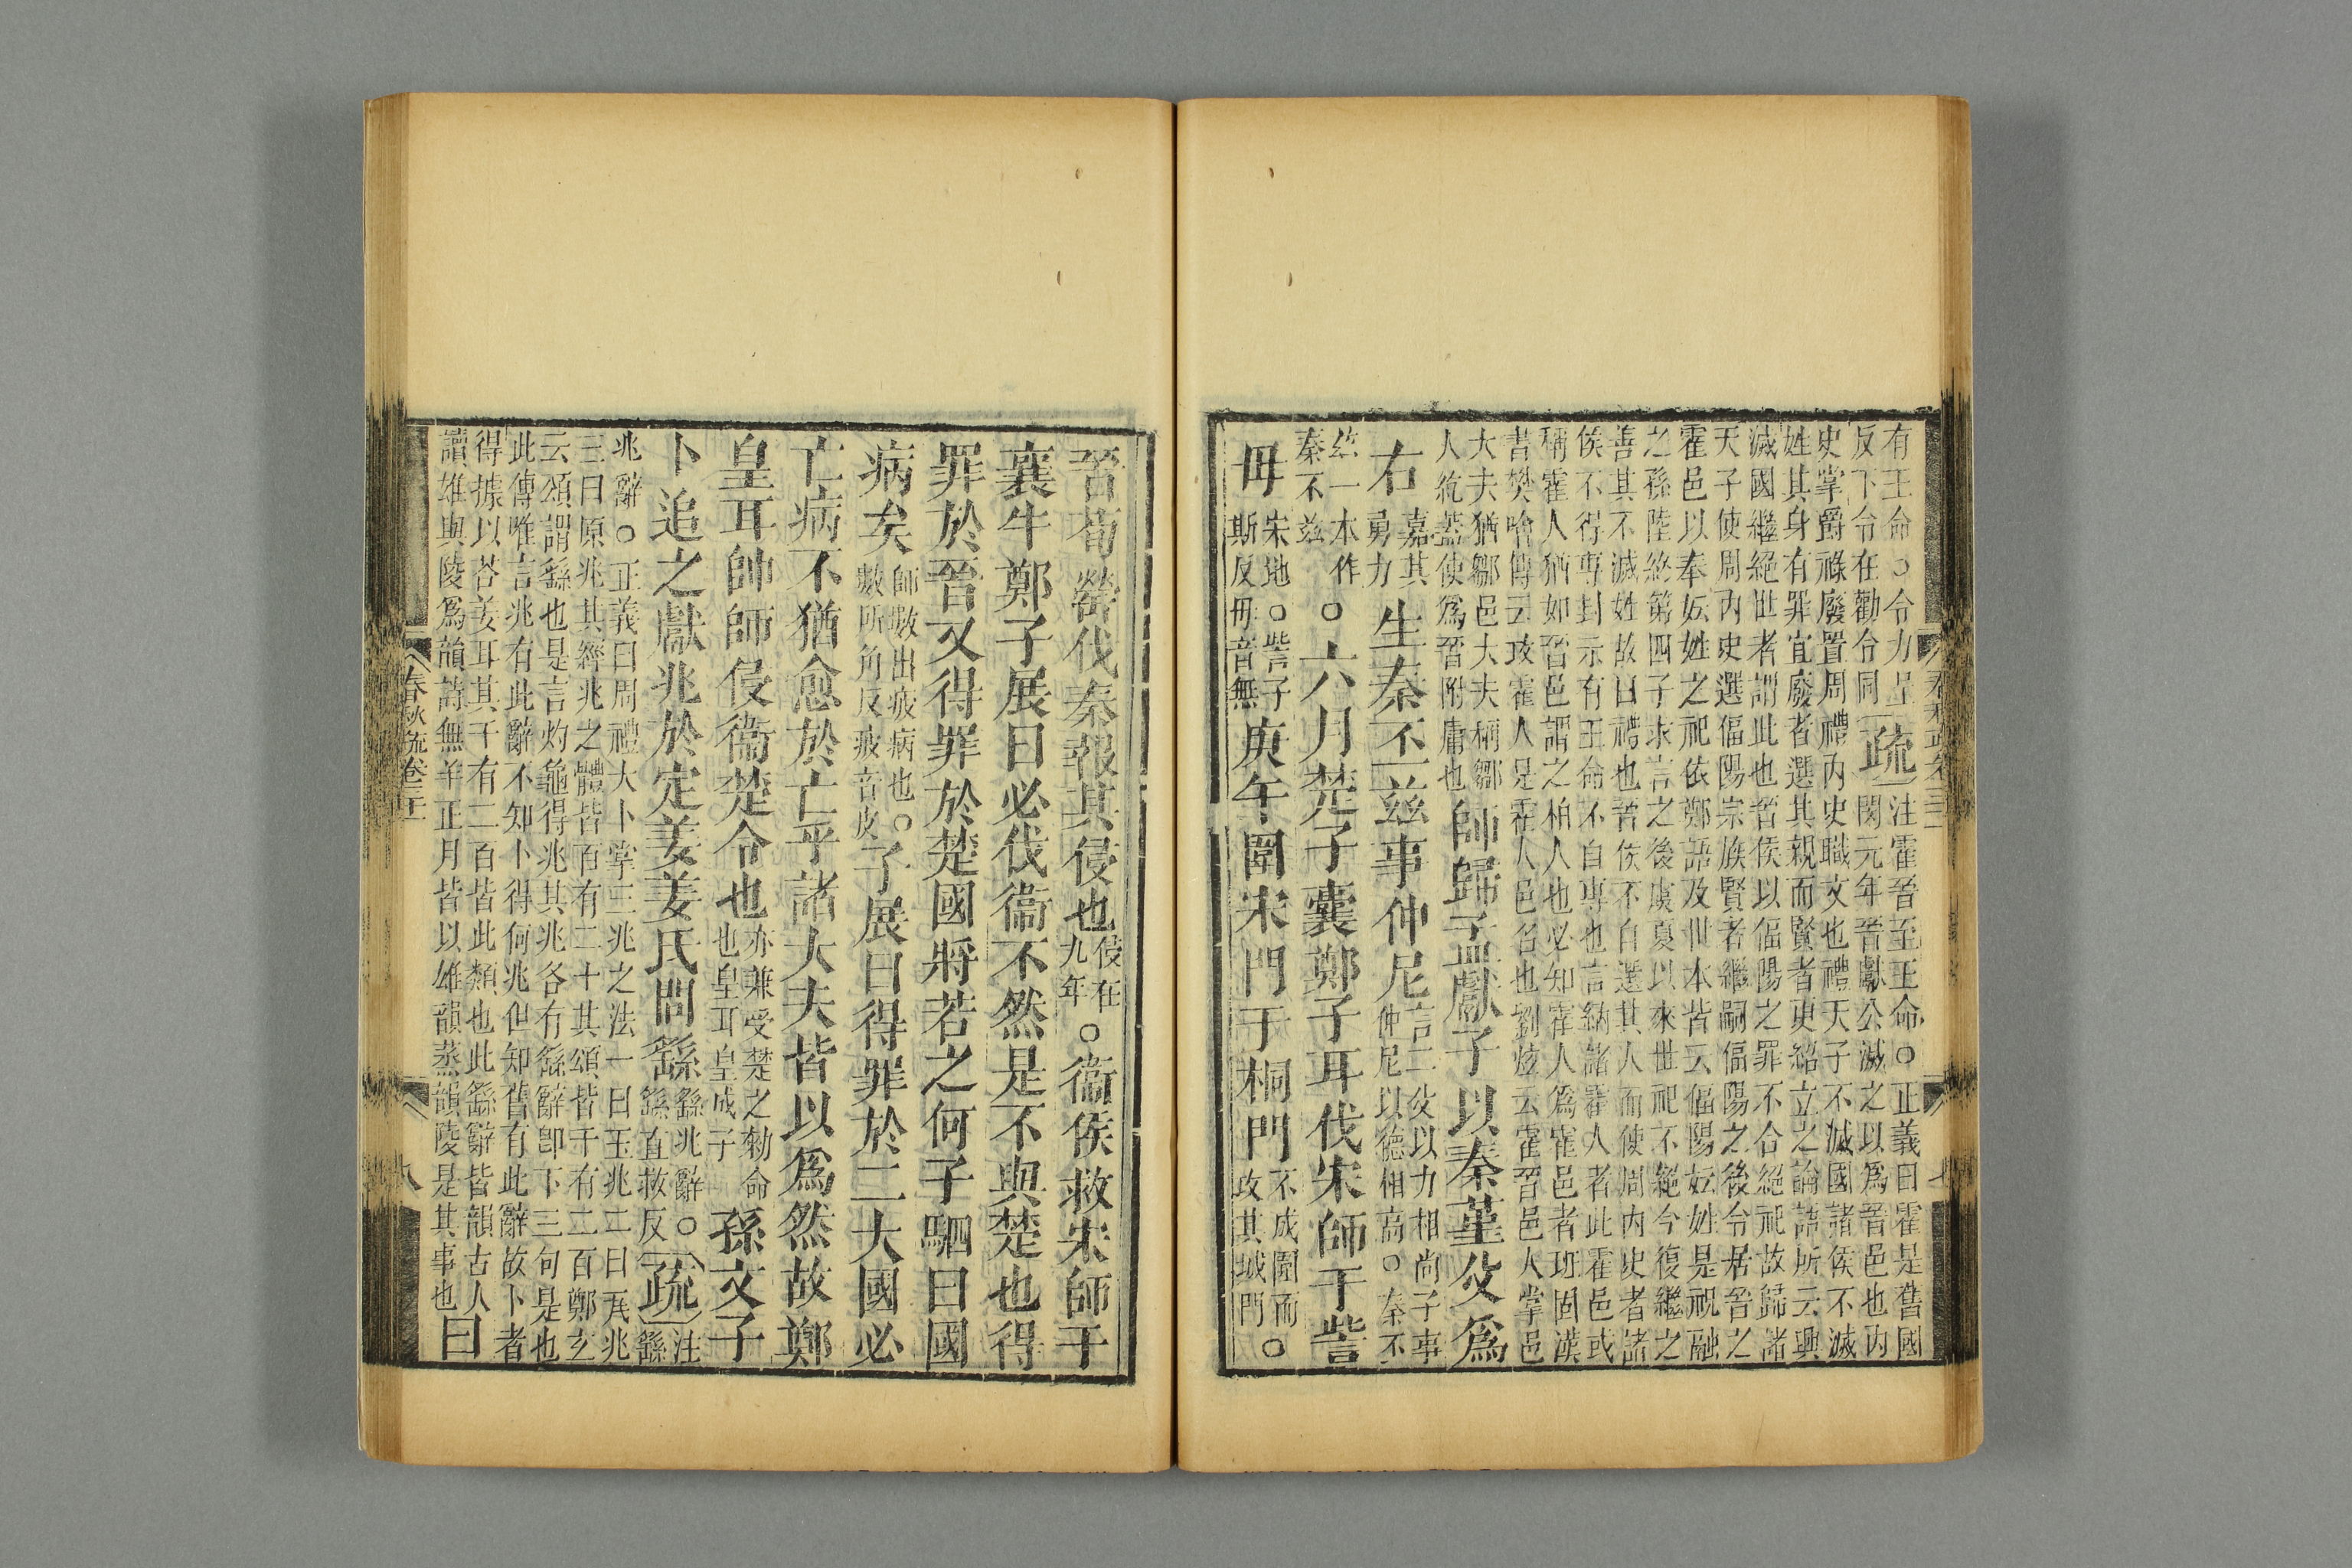 有王命○令力呈
反下令在勸令同
疏
注霍晉至王命○正義曰霍是舊國
閔元年晉獻公滅之以爲晉邑也内
史掌爵祿廢置周禮内史職文也禮天子不滅國諸侯不滅
姓其身有罪宜廢者選其親而賢者更紹立之論語所云興
滅國繼絕世者謂此也晉侯以偪陽之罪不合絕祀故歸諸
天子使周内史選偪陽宗族賢者繼嗣偪陽之後令居晉之
霍邑以奉妘姓之祀依鄭語及世本皆云偪陽妘姓是祝融
之孫陸終第四子求言之後虞夏以來世祀不絕今復繼之
善其不滅姓故曰禮也晉侯不自選其人而使周内史者諸
侯不得專封示有王命不自專也言納諸霍人者此霍邑或
稱霍人猶如晉邑謂之柏人也必知霍人爲霍邑者班固漢
書樊噲傳云攻霍人是霍人邑名也劉炫云霍晉邑人掌邑
大夫猶鄹邑大夫稱鄹
人紇蓋使爲晉附庸也
師歸孟獻子以秦堇父爲
右
嘉其
勇力
生秦丕茲事仲尼
言二父以力相尚子事
仲尼以德相高○秦不
茲一本作
秦不茲
○六月楚子囊鄭子耳伐宋師于訾
毋
宋地○訾子
斯反毋音無
庚午圍宋門于桐門
不成圍而
攻其城門
○
晉荀罃伐秦報其侵也
侵在
九年
○衞侯救宋師于
襄牛鄭子展曰必伐衞不然是不與楚也得
罪於晉又得罪於楚國將若之何子駟曰國
病矣
師數出疲病也○
數所角反疲音皮
子展曰得罪於二大國必
亡病不猶愈於亡乎諸大夫皆以爲然故鄭
皇耳帥師侵衞楚令也
亦兼受楚之勑命
也皇耳皇戌子
孫文子
卜追之獻兆於定姜姜氏問繇
繇兆辭○
繇直救反
疏
注
繇
兆辭○正義曰周禮大卜掌三兆之法一曰玉兆二曰瓦兆
三曰原兆其經兆之體皆百有二十其頌皆千有二百鄭玄
云頌謂繇也是言灼龜得兆其兆各有繇辭卽下三句是也
此傳唯言兆有此辭不知卜得何兆但知舊有此辭故卜者
得據以荅姜耳其千有二百皆此類也此繇辭皆韻古人
讀雄與陵爲韻詩無羊正月皆以雄韻蒸韻陵是其事也
曰
春秋疏卷三十一
八